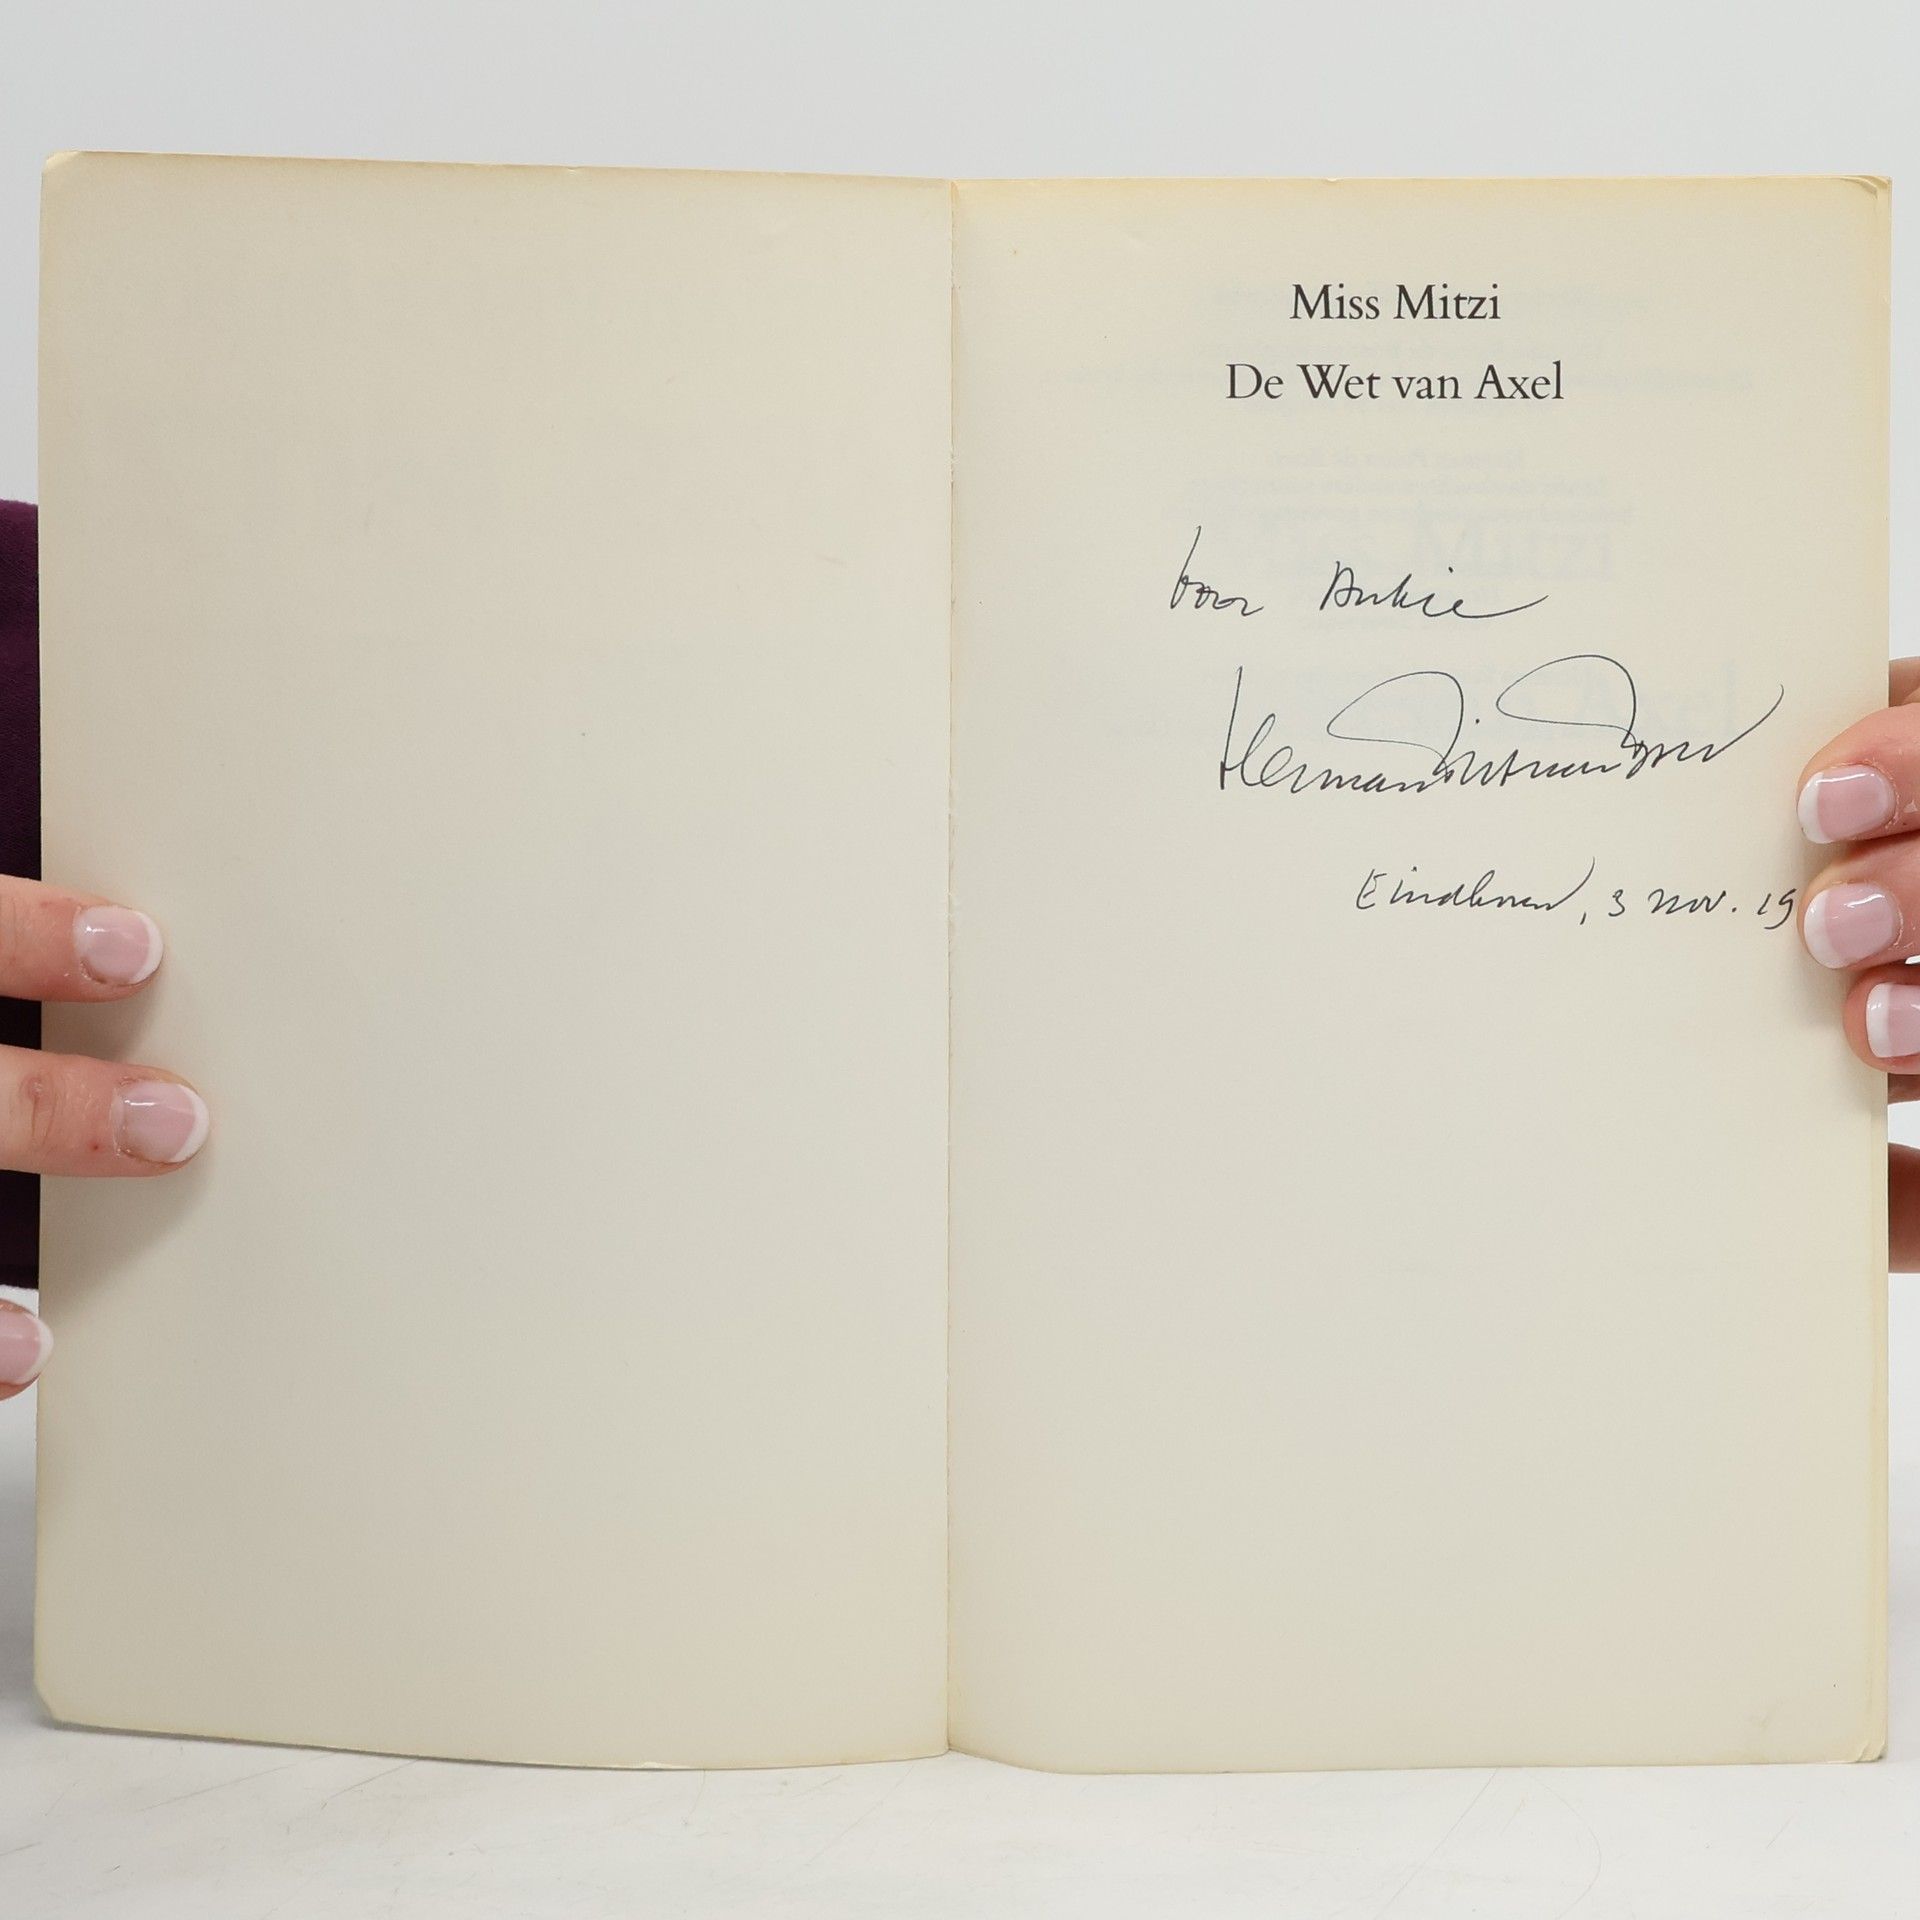 Miss Mitzi
De Wet van Axel
voor Ankie
Herman
Eindhoven, 3 nov. 19